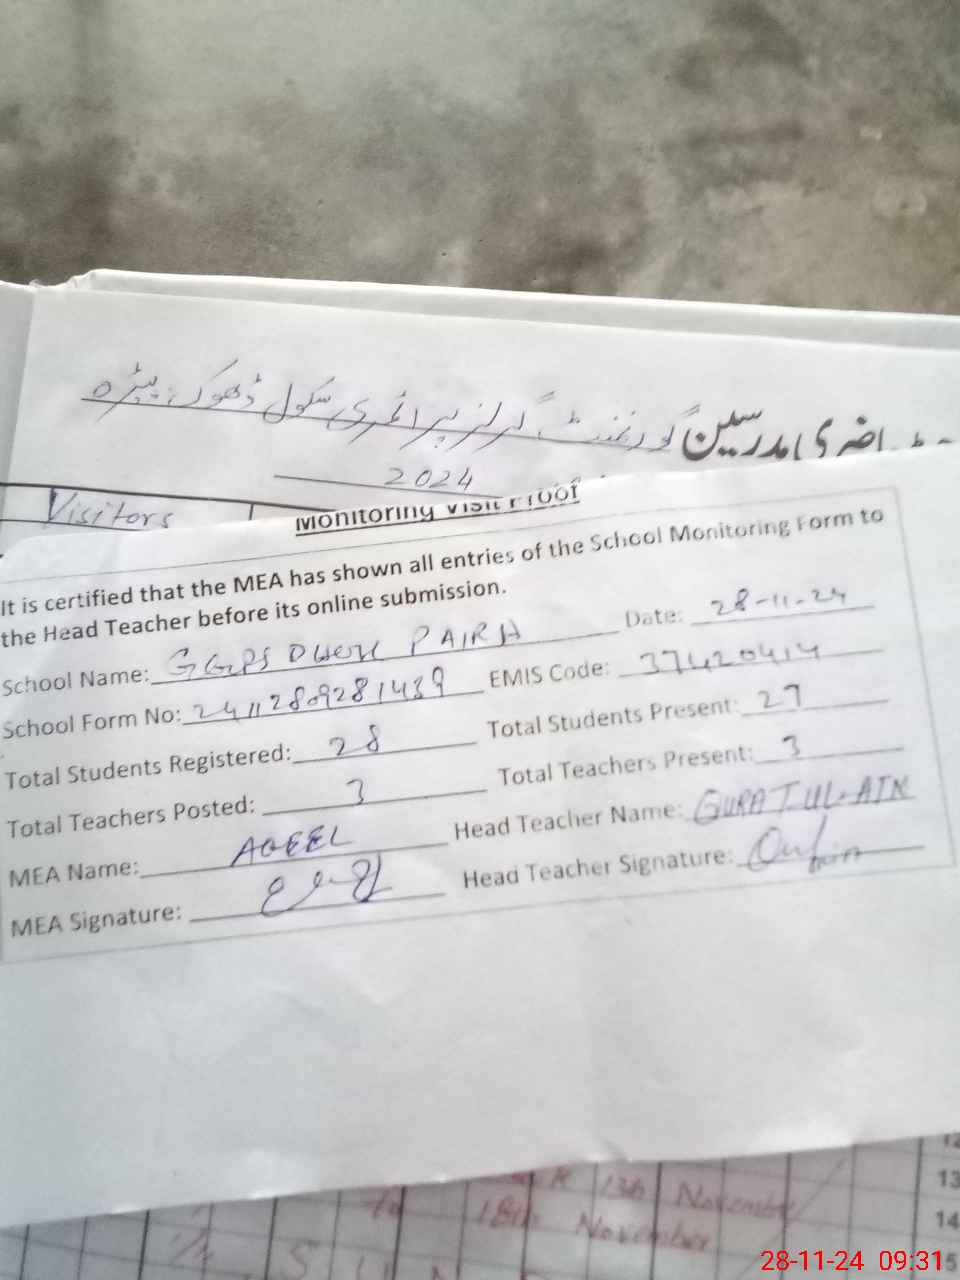 حاضری مدرسین گورنمنٹ گرلز پرائمری سکول ڈھوک پیڑہ
2024
Visitors
Monitoring Visit Proof
It is certified that the MEA has shown all entries of the School Monitoring Form to
the Head Teacher before its online submission.
School Name: GGPS DHOK PAIRA Date: 28-11-24
School Form No: 24112809281439 EMIS Code: 37420414
Total Students Registered: 28 Total Students Present: 27
Total Teachers Posted: 3 Total Teachers Present: 3
MEA Name: AQEEL Head Teacher Name: QURAT-UL-AIN
MEA Signature: Head Teacher Signature:
13th November 13
to 18th November 14
S U N 15
28-11-24 09:31